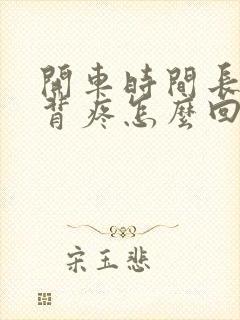 開車時間長
背疼怎麼回
宋玉悲